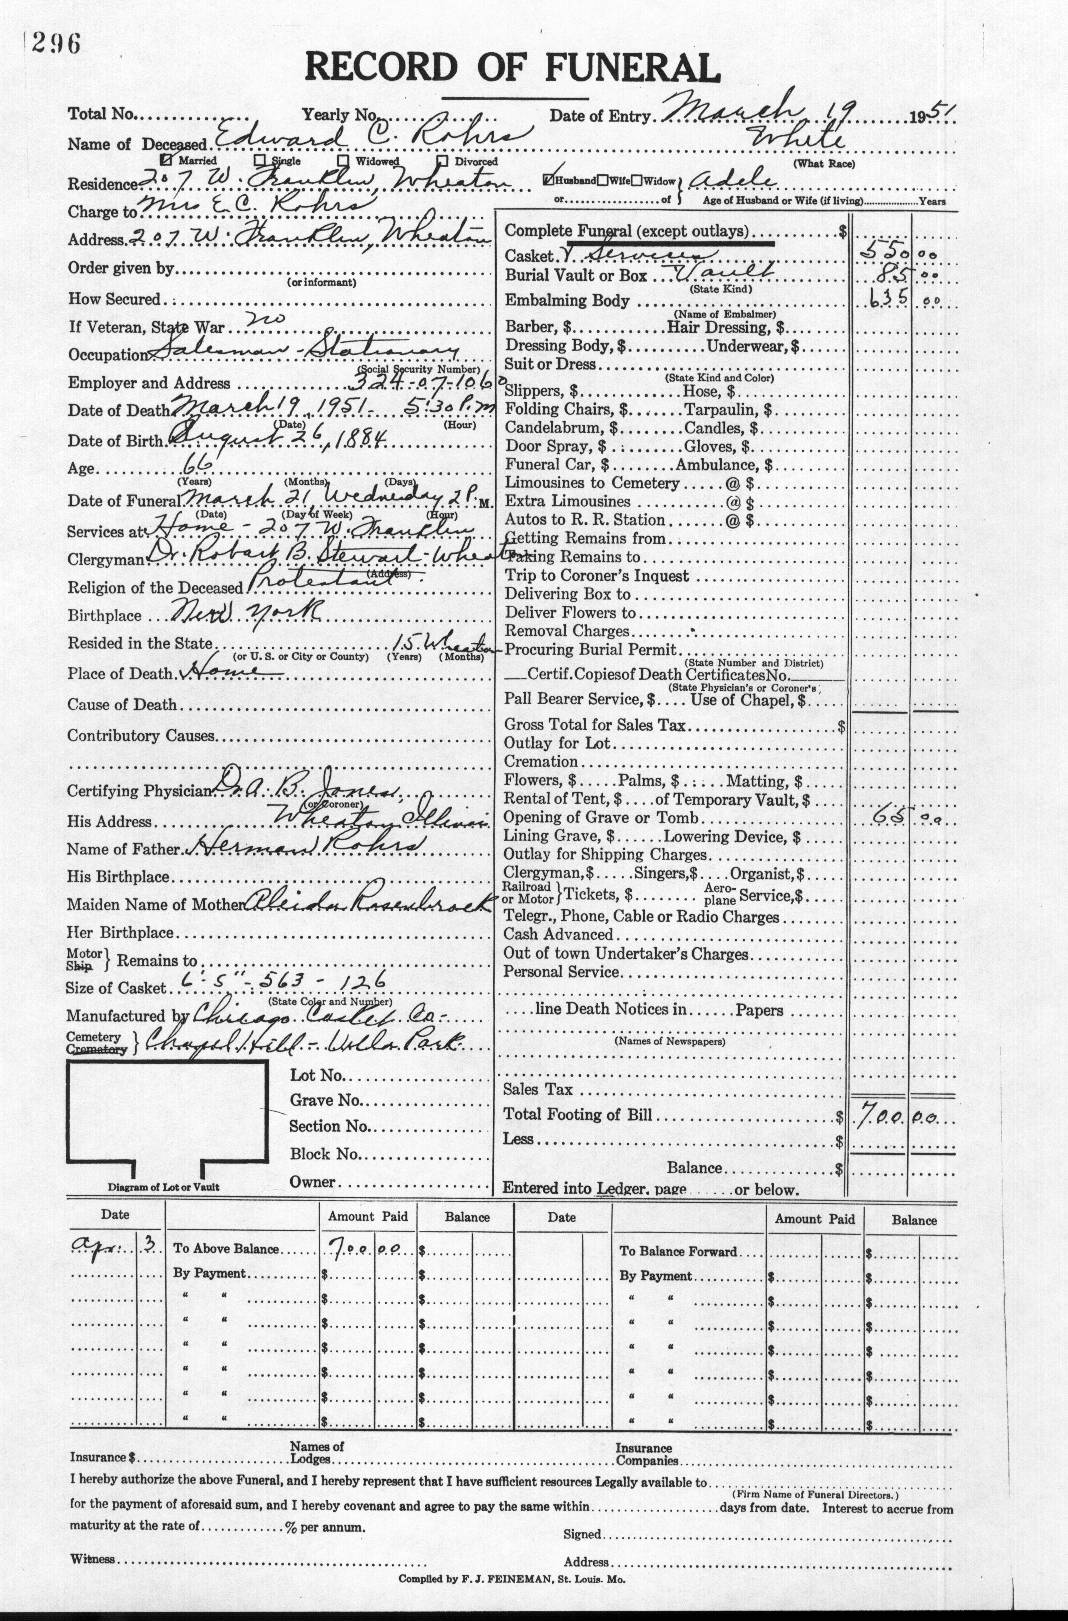 296
RECORD OF FUNERAL
Total No. Yearly No. Date of Entry March 19 1951
Name of Deceased Edward C. Rohrs White
Married Single Widowed Divorced (What Race)
Residence 207 W. Franklin, Wheaton Husband Wife Widow } Adele
or of Age of Husband or Wife (if living) Years
Charge to Mrs E. C. Rohrs
Address 207 W. Franklin, Wheaton
Order given by
(or informant)
How Secured
If Veteran, State War no
Occupation Salesman - Stationary
(Social Security Number)
Employer and Address 324-07-1060
Date of Death March 19, 1951 - 5:30 P.M
(Date) (Hour)
Date of Birth August 26, 1884
Age 66
(Years) (Months) (Days)
Date of Funeral March 21 Wednesday 2 P. M.
(Date) (Day of Week) (Hour)
Services at Home - 207 W. Franklin
Clergyman Dr. Robert B. Stewart - Wheaton
(Address)
Religion of the Deceased Protestant
Birthplace New York
Resided in the State 15 Wheaton
(or U. S. or City or County) (Years) (Months)
Place of Death Home
Cause of Death
Contributory Causes
Certifying Physician Dr. A. B. Jones,
(or Coroner)
His Address Wheaton, Illinois
Name of Father Herman Rohrs
His Birthplace
Maiden Name of Mother Aleida Rosenbrock
Her Birthplace
Motor Ship } Remains to
Size of Casket 6'-5" - 563 - 126
(State Color and Number)
Manufactured by Chicago Casket Co-
Cemetery Crematory } Chapel Hill - Villa Park
Lot No.
Grave No.
Section No.
Block No.
Owner
Diagram of Lot or Vault
Complete Funeral (except outlays) $
Casket & Services 550 00
Burial Vault or Box Vault 85 00
(State Kind)
Embalming Body 635 00
(Name of Embalmer)
Barber, $ Hair Dressing, $
Dressing Body, $ Underwear, $
Suit or Dress
(State Kind and Color)
Slippers, $ Hose, $
Folding Chairs, $ Tarpaulin, $
Candelabrum, $ Candles, $
Door Spray, $ Gloves, $
Funeral Car, $ Ambulance, $
Limousines to Cemetery @ $
Extra Limousines @ $
Autos to R. R. Station @ $
Getting Remains from
Taking Remains to
Trip to Coroner's Inquest
Delivering Box to
Deliver Flowers to
Removal Charges
Procuring Burial Permit
(State Number and District)
Certif. Copies of Death Certificates No.
(State Physician's or Coroner's)
Pall Bearer Service, $ Use of Chapel, $
Gross Total for Sales Tax $
Outlay for Lot
Cremation
Flowers, $ Palms, $ Matting, $
Rental of Tent, $ of Temporary Vault, $
Opening of Grave or Tomb 65 00
Lining Grave, $ Lowering Device, $
Outlay for Shipping Charges
Clergyman, $ Singers, $ Organist, $
Railroad or Motor } Tickets, $ Aero-plane Service, $
Telegr., Phone, Cable or Radio Charges
Cash Advanced
Out of town Undertaker's Charges
Personal Service
line Death Notices in Papers
(Names of Newspapers)
Sales Tax
Total Footing of Bill $ 700 00
Less $
Balance $
Entered into Ledger, page or below.
Date Amount Paid Balance Date Amount Paid Balance
Apr. 3 To Above Balance 700 00 $ To Balance Forward $
By Payment $ $ By Payment $ $
" " $ $ " " $ $
" " $ $ " " $ $
" " $ $ " " $ $
" " $ $ " " $ $
" " $ $ " " $ $
" " $ $ " " $ $
Insurance $ Names of Lodges Insurance Companies
I hereby authorize the above Funeral, and I hereby represent that I have sufficient resources Legally available to
(Firm Name of Funeral Directors.)
for the payment of aforesaid sum, and I hereby covenant and agree to pay the same within days from date. Interest to accrue from
maturity at the rate of % per annum.
Signed
Witness Address
Compiled by F. J. FEINEMAN, St. Louis. Mo.